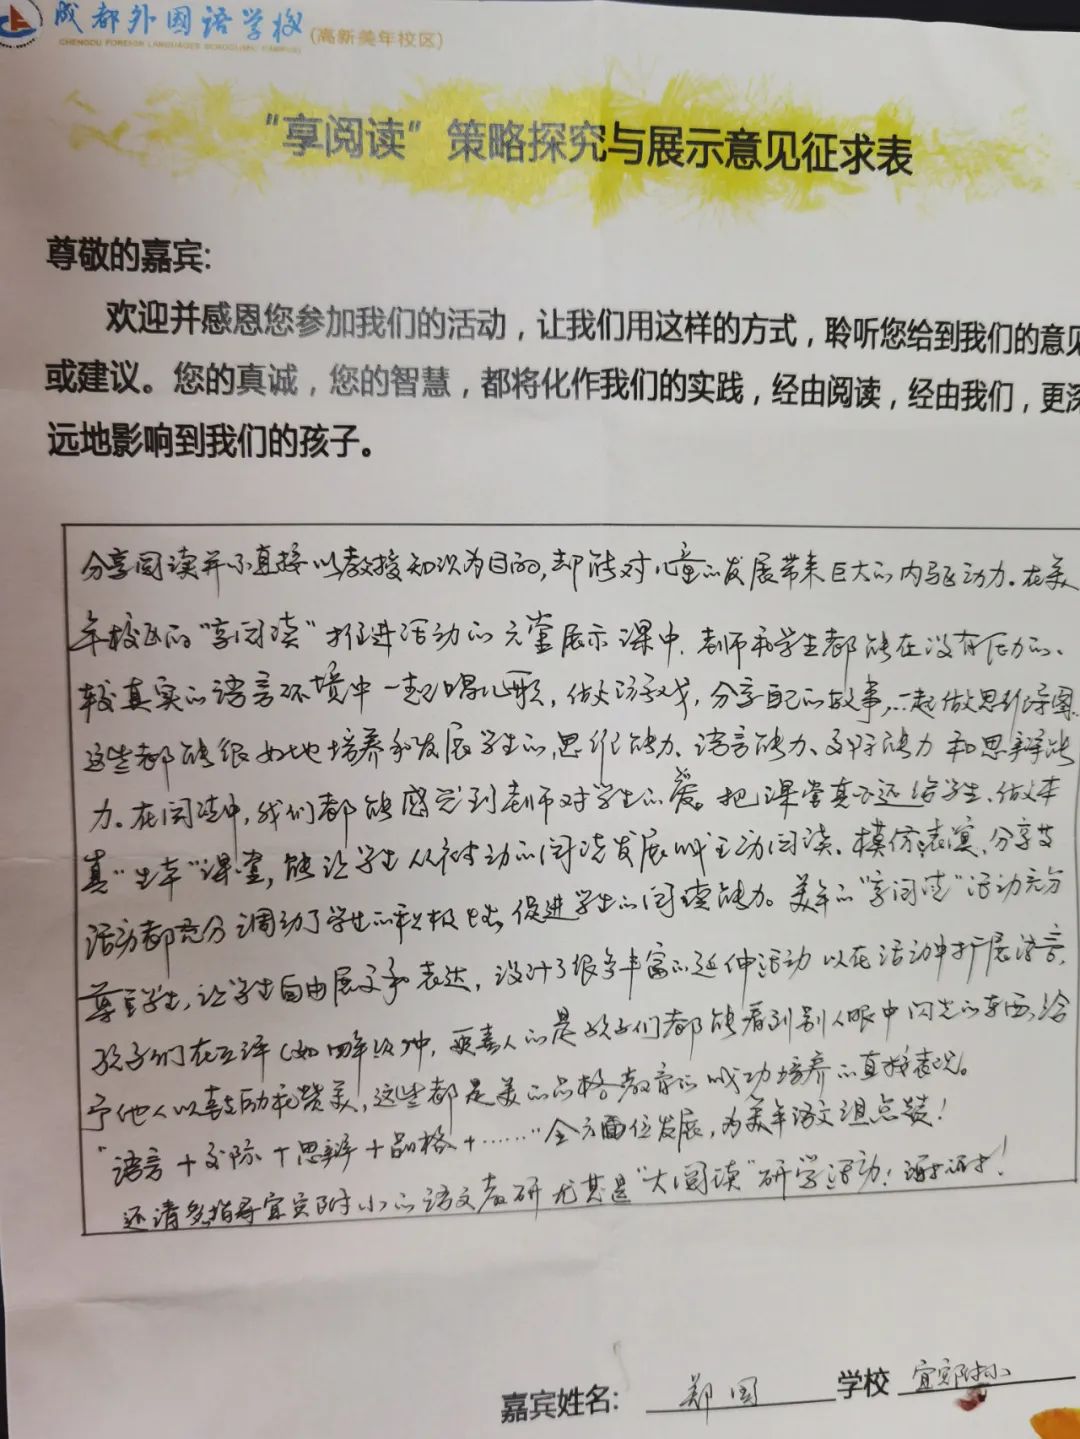 成都外国语学校(高新美年校区)
CHENGDU FOREIGN LANGUAGES SCHOOL
"享阅读"策略探究与展示意见征求表
尊敬的嘉宾:
欢迎并感恩您参加我们的活动，让我们用这样的方式，聆听您给到我们的意见
或建议。您的真诚，您的智慧，都将化作我们的实践，经由阅读，经由我们，更深
远地影响到我们的孩子。
分享阅读并不直接以教授知识为目的,却能对儿童的发展带来巨大的内驱动力。在美
年校区的"享阅读"推进活动的展示课中,老师和学生都能在没有压力的、
较真实的语言环境中一起唱儿歌,做游戏,分享自己的故事,一起做思维导图
这些都能很好地培养和发展学生的思维能力、语言能力、交际能力和思辩能
力。在阅读中,我们都能感觉到老师对学生的爱。把课堂真正还给学生、做本
真"生本"课堂,能让学生从被动的阅读发展成主动阅读、模仿表演、分享等
活动都充分调动了学生的积极性,促进学生的阅读能力。美年的"享阅读"活动充分
尊重学生,让学生自由展示和表达,设计了很多丰富的延伸活动以在活动中扩展语言,
孩子们在互评(如四年级)中,更喜人的是孩子们都能看到别人眼中闪光的东西,给
予他人以鼓励和赞美,这些都是美的品格教育的成功培养的直接表现。
"语言+交际+思辩+品格+……"全方面位发展,为美年语文组点赞!
还请多指导宜宾附小的语文教研尤其是"大阅读"研学活动!谢谢!
嘉宾姓名: 郑国 学校 宜宾附小